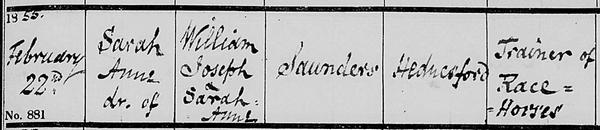 1855.
February
22nd
No. 881
Sarah
Anne
dr. of
William
Joseph
&
Sarah-
Anne
Saunders
Hednesford
Trainer of
Race =
= Horses